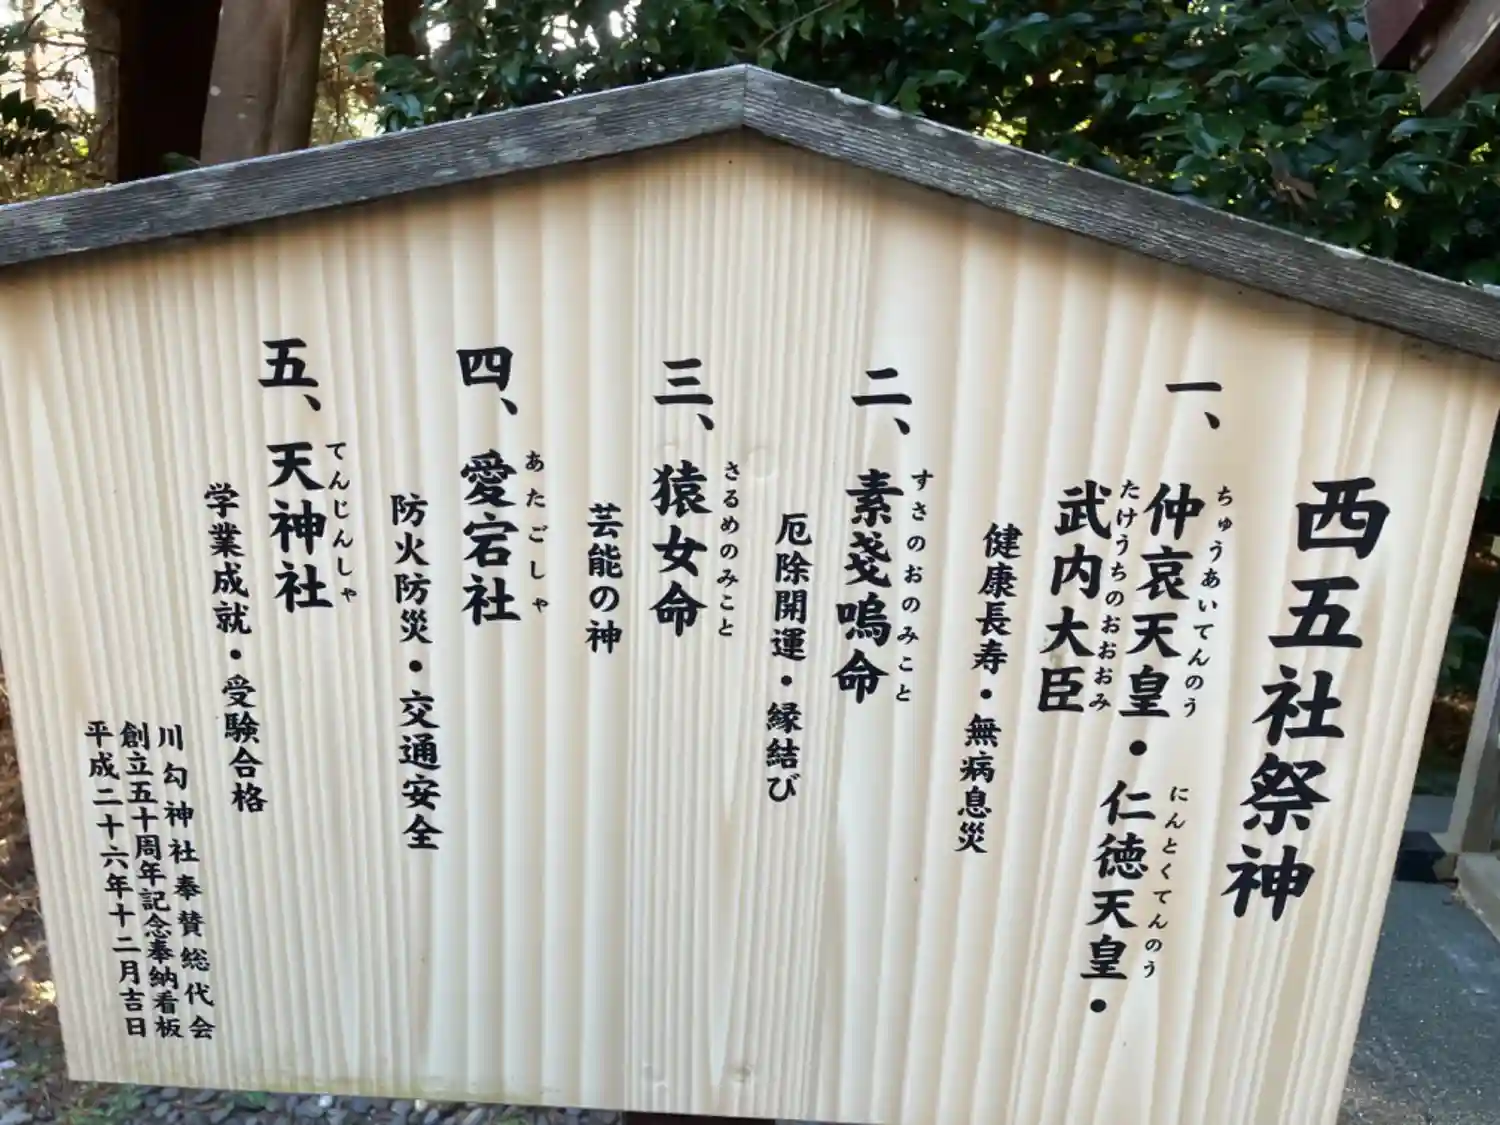 西五社祭神
一、
ちゅうあいてんのう にんとくてんのう
仲哀天皇・仁徳天皇・
たけうちのおおおみ
武内大臣
健康長寿・無病息災
すさのおのみこと
二、素戔嗚命
厄除開運・縁結び
さるめのみこと
三、猿女命
芸能の神
あたごしゃ
四、愛宕社
防火防災・交通安全
てんじんしゃ
五、天神社
学業成就・受験合格
川勾神社奉賛総代会
創立五十周年記念奉納看板
平成二十六年十二月吉日